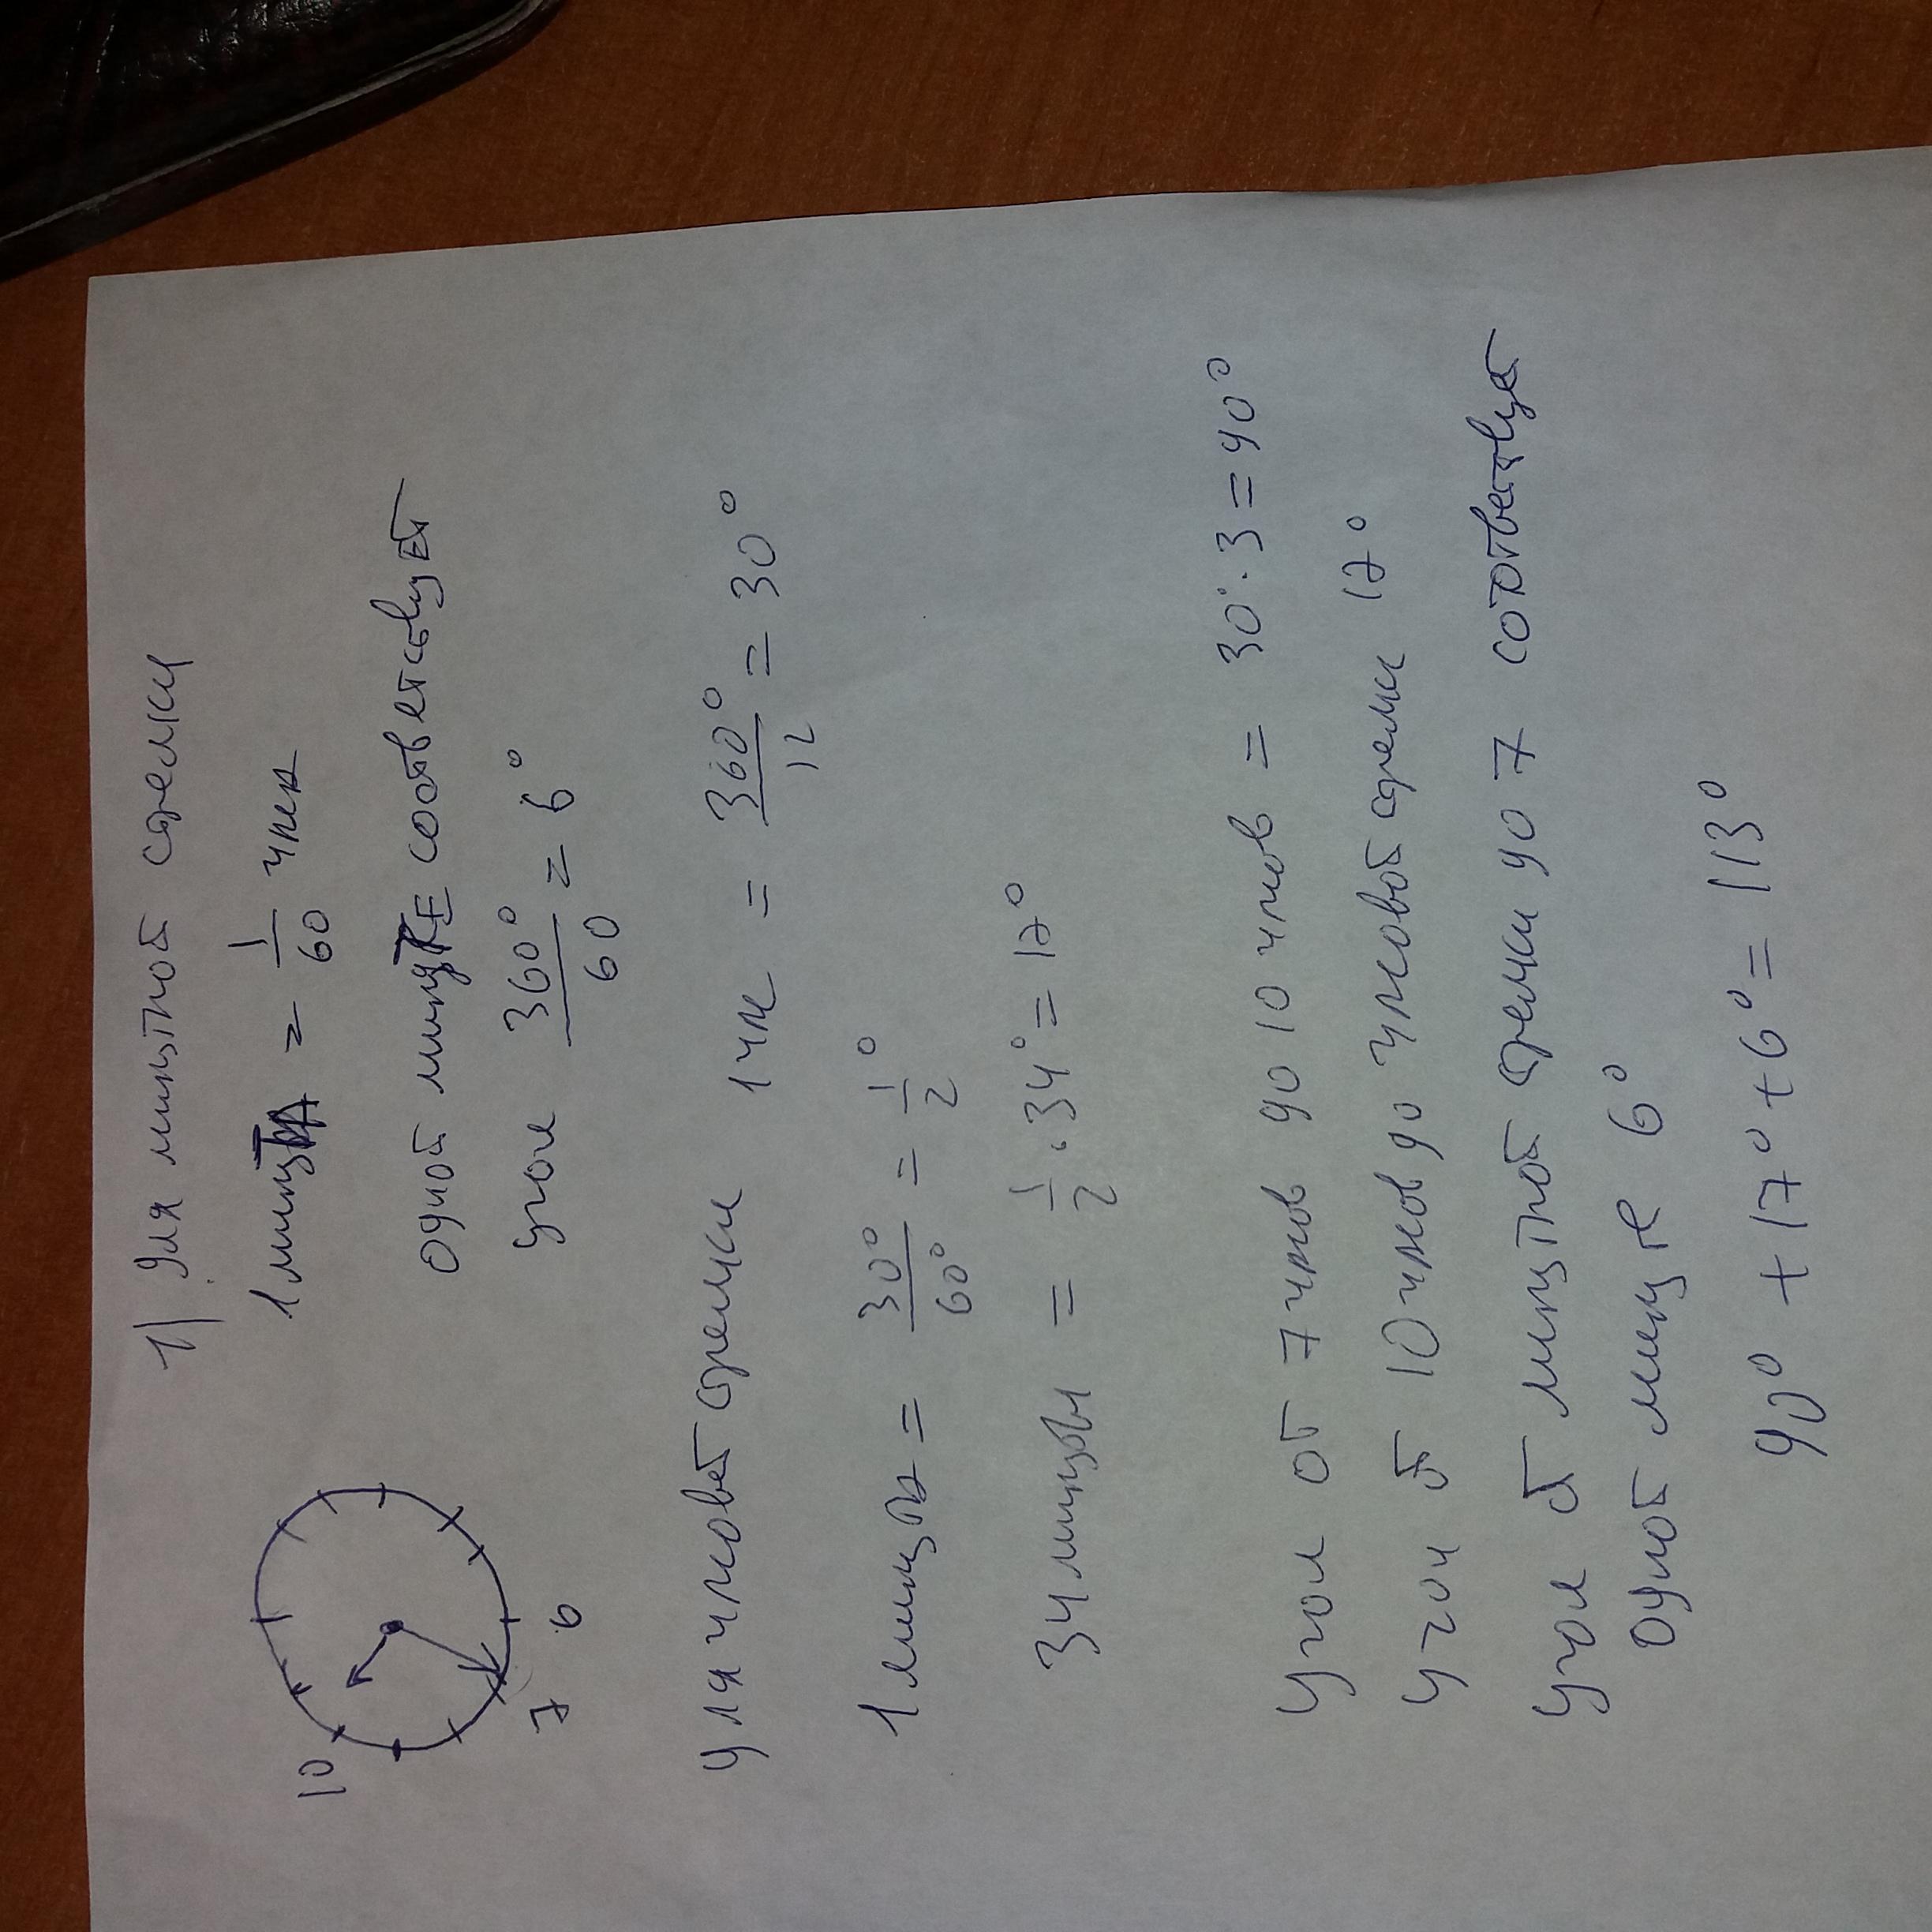 1) Для минутной стрелки
1 минута = 1/60 часа
одной минуте соответствует
угол 360°/60 = 6°
10
7 6
У часовой стрелки 1 час = 360°/12 = 30°
1 минута = 30°/60° = 1/2°
34 минуты = 1/2 · 34° = 17°
Угол от 7 часов до 10 часов = 30° · 3 = 90°
Угол от 10 часов до часовой стрелки 17°
Угол от минутной стрелки до 7 соответствует
одной минуте 6°
90° + 17° + 6° = 113°